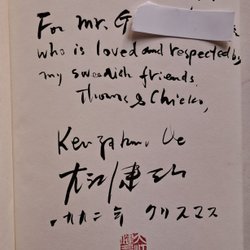 For Mr. G
who is loved and respected by
my swedish friends.
Thomas & Chieko,
Kenzaburo Oe
大江健三郎
一九九二年 クリスマス